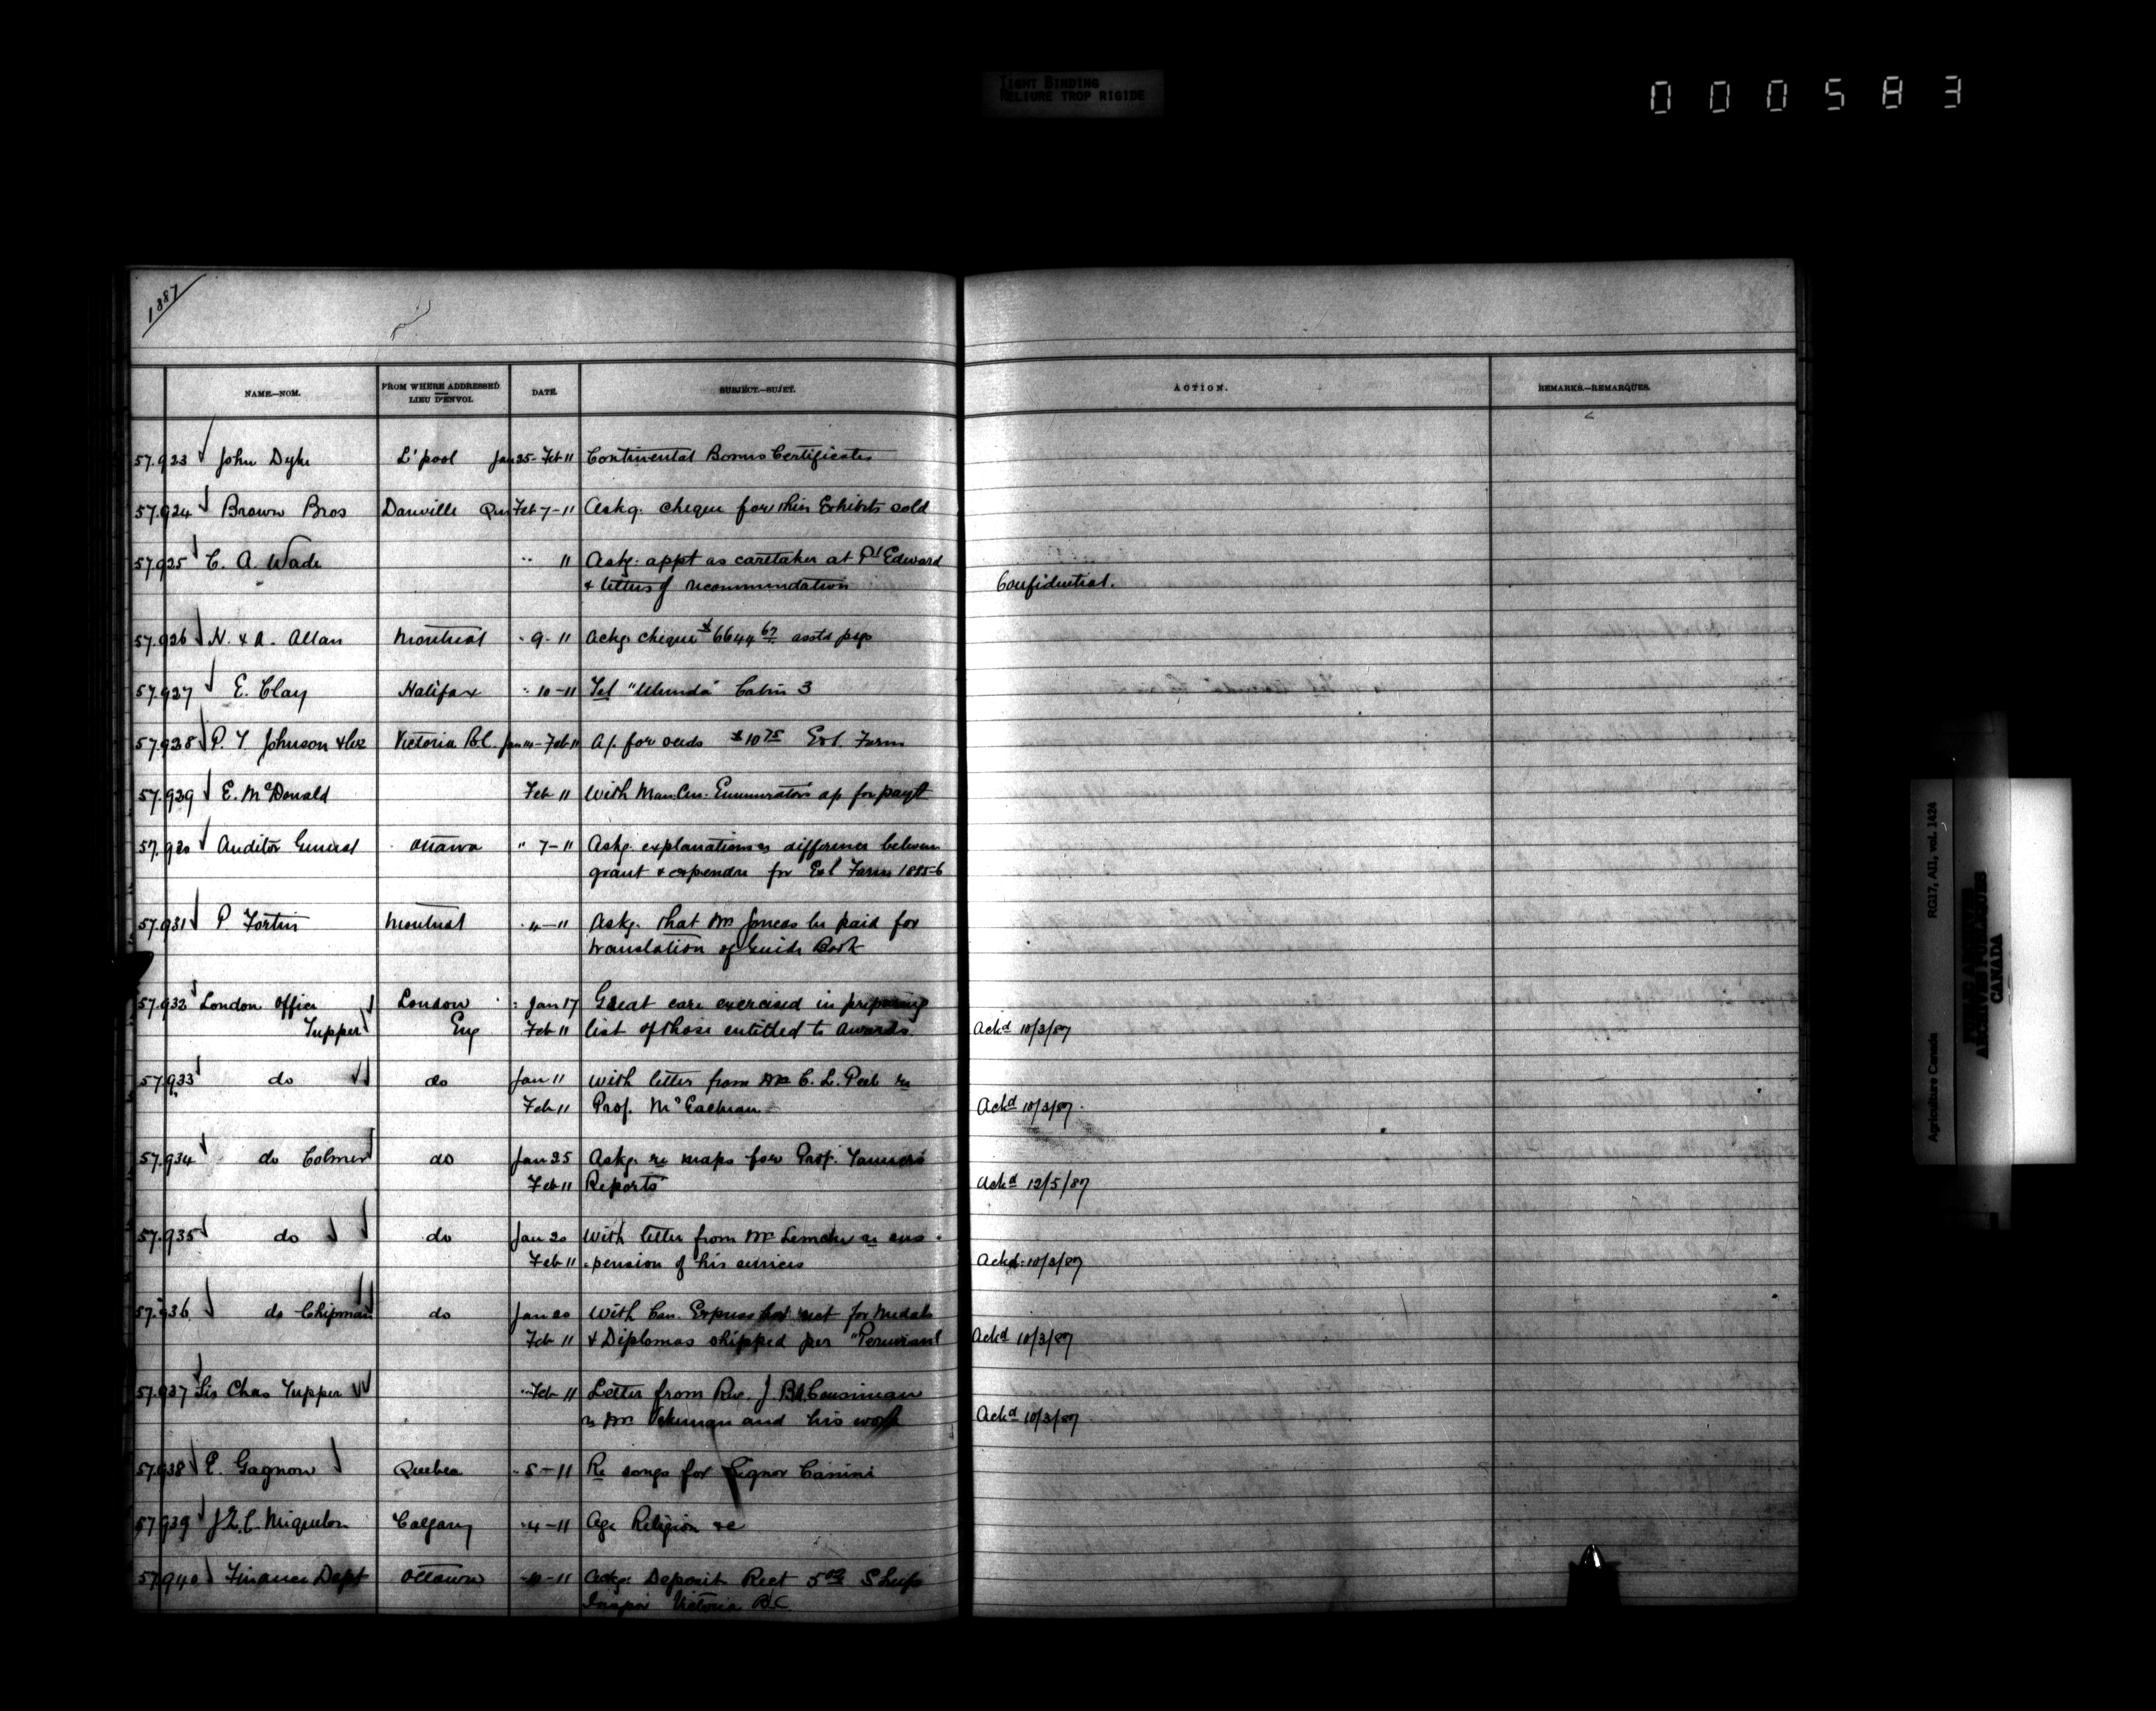 TIGHT BINDING
RELIURE TROP RIGIDE
000583
1887
NAME.—NOM.
FROM WHERE ADDRESSED
LIEU D'ENVOI.
DATE.
SUBJECT.—SUJET.
ACTION.
REMARKS.—REMARQUES.
57.923 John Dyke L'pool Jan 25-Feb 11 Continental Bonus Certificates
57.924 Brown Bros Danville Que Feb 7-11 Askg. cheque for their Exhibits sold
57.925 C. A. Wade " 11 Askg. appt as caretaker at Pt Edward
& letters of recommendation Confidential.
57.926 H. & A. Allan Montreal " 9-11 Ackg. cheque $6644 67 asstd psgs
57.927 E. Clay Halifax " 10-11 Tel "Ulunda" Cabin 3
57.928 P. T. Johnson & Co Victoria B.C. Jan 14-Feb 11 A/. for seeds $10 75 Exl. Farm
57.929 E. McDonald Feb 11 With Man. Cen. Enumerators ap for payt
57.930 Auditor General Ottawa " 7-11 Askg. explanation as difference between
grant & expendre for Exl Farms 1885-6
57.931 P. Fortin Montreal " 11 Askg. that Mr Joncas be paid for
translation of Guide Book
57.932 London Office London Jan 17 Great care exercised in preparing
Tupper Eng Feb 11 list of those entitled to awards Ackd 10/3/87
57.933 do do Jan 11 With letter from Mr C. L. Peel re
Feb 11 Prof. McEachran Ackd 10/3/87.
57.934 do Colmer do Jan 25 Askg. re maps for Prof. Tanner's
Feb 11 Reports Ackd 12/5/87
57.935 do do Jan 20 With letter from Mr re sus-
Feb 11 -pension of his services Ackd. 10/3/87
57.936 do Chipman do Jan 20 With Can. Express rect for Medals
Feb 11 & Diplomas shipped per "Peruvian" Ackd 10/3/87
57.937 Sir Chas Tupper Feb 11 Letter from Rev. J.
re Mr and his work Ackd 10/3/87
57.938 E. Gagnon Quebec " 8-11 Re songs for Signor Canini
57.939 J. Z. C. Miquelon Calgary " 4-11 Age Religion &c
57.940 Finance Dept Ottawa " 10-11 Ackg. Deposit Rect 5 00 Sheep
Inspn Victoria B.C.
Agriculture Canada RG17, AII, vol. 1424
PUBLIC ARCHIVES
ARCHIVES PUBLIQUES
CANADA